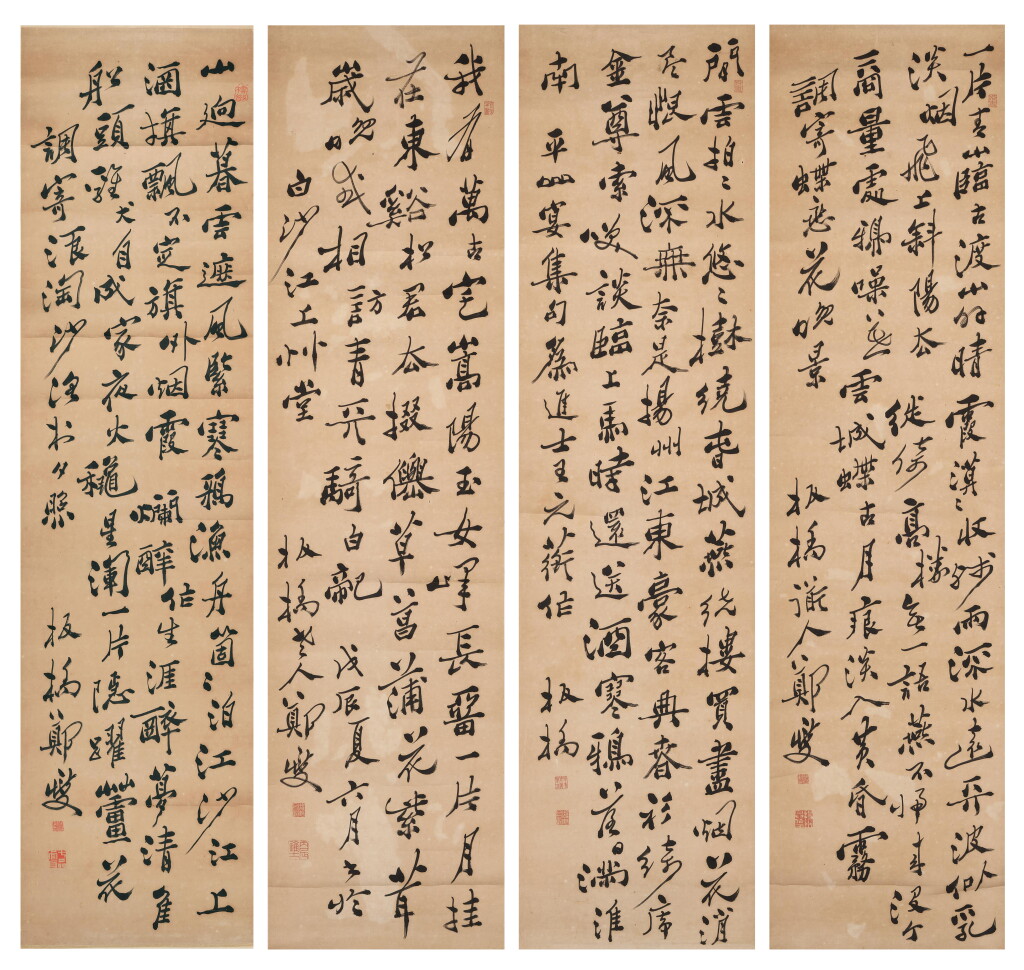 一片青山臨古渡山外晴霞漠〻收殘雨流水遠天波似乳
淡烟飛上斜陽去徙倚高樓無一語燕不歸來没个
商量處鴉噪暮雲城堞古月痕淡入黃昏霧
調寄蝶戀花晚景 板橋道人鄭燮
閒雲拍〻水悠〻樹繞春城燕繞樓買盡烟花消
尽恨風流無奈是揚州江東豪客典春衫綺席
金尊索笑談臨上馬時還送酒寒鴉落日滿淮
南 平山宴集句為進士王元蘅作 板橋
我有萬古宅嵩陽玉女峰長留一片月挂
在東谿松君去掇僊草菖蒲花紫茸
歲晚或相訪青天騎白龍 戊辰夏六月書於
白沙江上艸堂 板橋老人鄭燮
山迥暮雲遮風緊寒鴉漁舟箇〻泊江沙江上
酒旗飄不定旗外烟霞 爛醉作生涯醉夢清佳
船頭雞犬自成家夜火穐星渾一片隱躍蘆花
調寄浪淘沙漁村夕照 板橋鄭燮